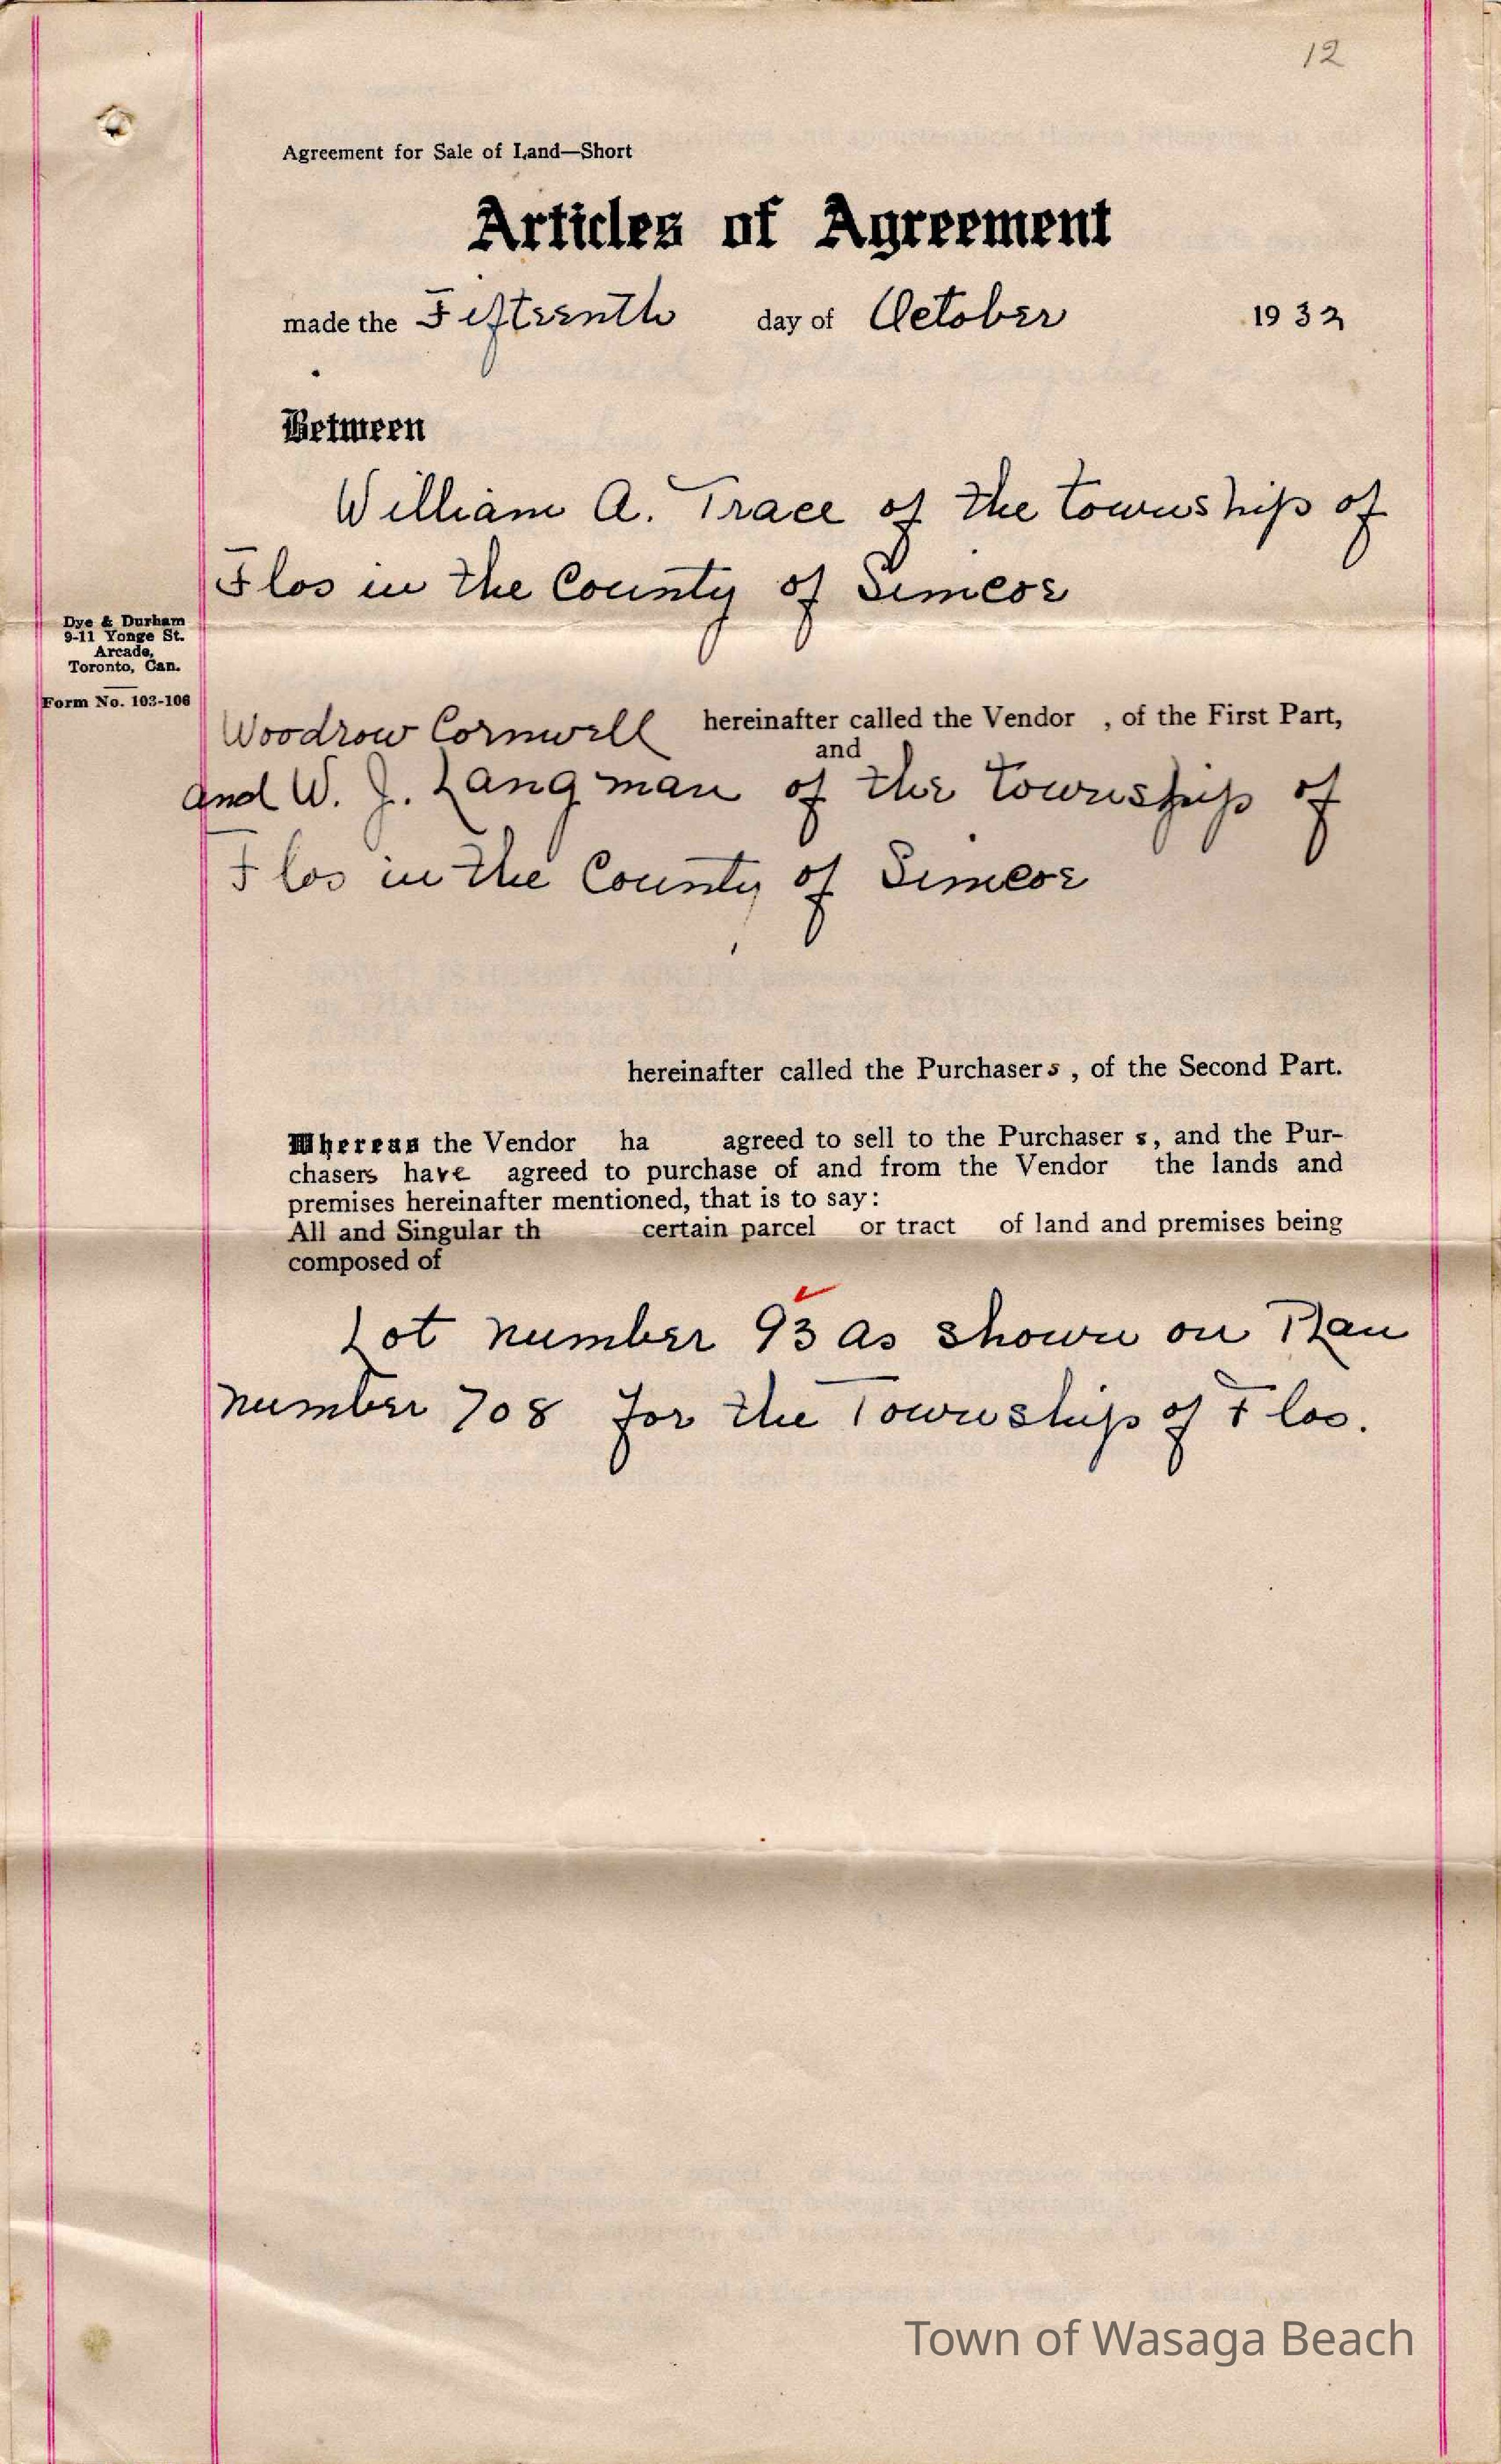 12
Agreement for Sale of Land—Short
Articles of Agreement
made the Fifteenth day of October 1932
Between
William A. Trace of the township of
Flos in the County of Simcoe
Dye & Durham
9-11 Yonge St.
Arcade,
Toronto, Can.
Form No. 103-106
Woodrow Cornwell hereinafter called the Vendor , of the First Part,
and
and W. J. Langman of the township of
Flos in the County of Simcoe
hereinafter called the Purchasers , of the Second Part.
Whereas the Vendor ha agreed to sell to the Purchaser s, and the Pur-
chasers have agreed to purchase of and from the Vendor the lands and
premises hereinafter mentioned, that is to say:
All and Singular th certain parcel or tract of land and premises being
composed of
Lot number 93 as shown on Plan
number 708 for the Township of Flos.
Town of Wasaga Beach